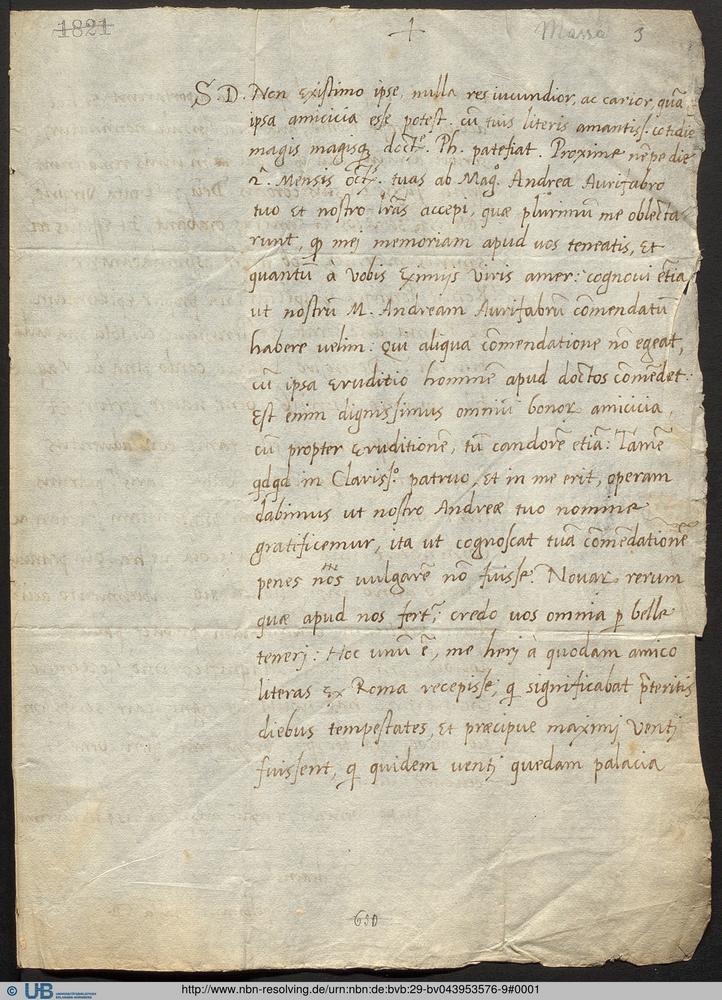 1821
+
Massa 3
S D. Non existimo ipse, nulla res iucundior, ac carior, quā
ipsa amicicia esse potest. cū tuis literis amantiss. cotidie
magis magisq; doct.e Ph. patefiat. Proxime nēpe die
2.a Mensis octr.s tuas ab Mag.o Andrea Aurifabro
tuo et nostro lr̄as accepi, quæ plurimū me oblecta
runt, q mei memoriam apud uos teneatis, et
quantū à vobis eximijs viris amer: cognoui etiā
ut nostrū M. Andream Aurifabrū cōmendatū
habere uelim: qui aliqua cōmendatione nō egeat,
cū ipsa eruditio hominē apud doctos cōmēdet:
est enim dignissimus omniū bonor amicicia,
cū propter eruditionē, tū candorē etiā: Tamē
qdqd in Clariss.o patruo, et in me erit, operam
dabimus ut nostro Andreæ tuo nomine
gratificemur, ita ut cognoscat tuā cōmendationē
penes nos uulgarē nō fuisse. Nouar rerum
quæ apud nos fert.r, credo uos omnia p belle
tenerj: Hoc unū ē, me herj à quodam amico
literas ex Roma recepisse, q significabat p̄teritis
diebus tempestates, et præcipue maximj Ventj
fuissent, q quidem uentj quedam palacia
630
© UB UNIVERSITÄTSBIBLIOTHEK ERLANGEN-NÜRNBERG http://www.nbn-resolving.de/urn:nbn:de:bvb:29-bv043953576-9#0001